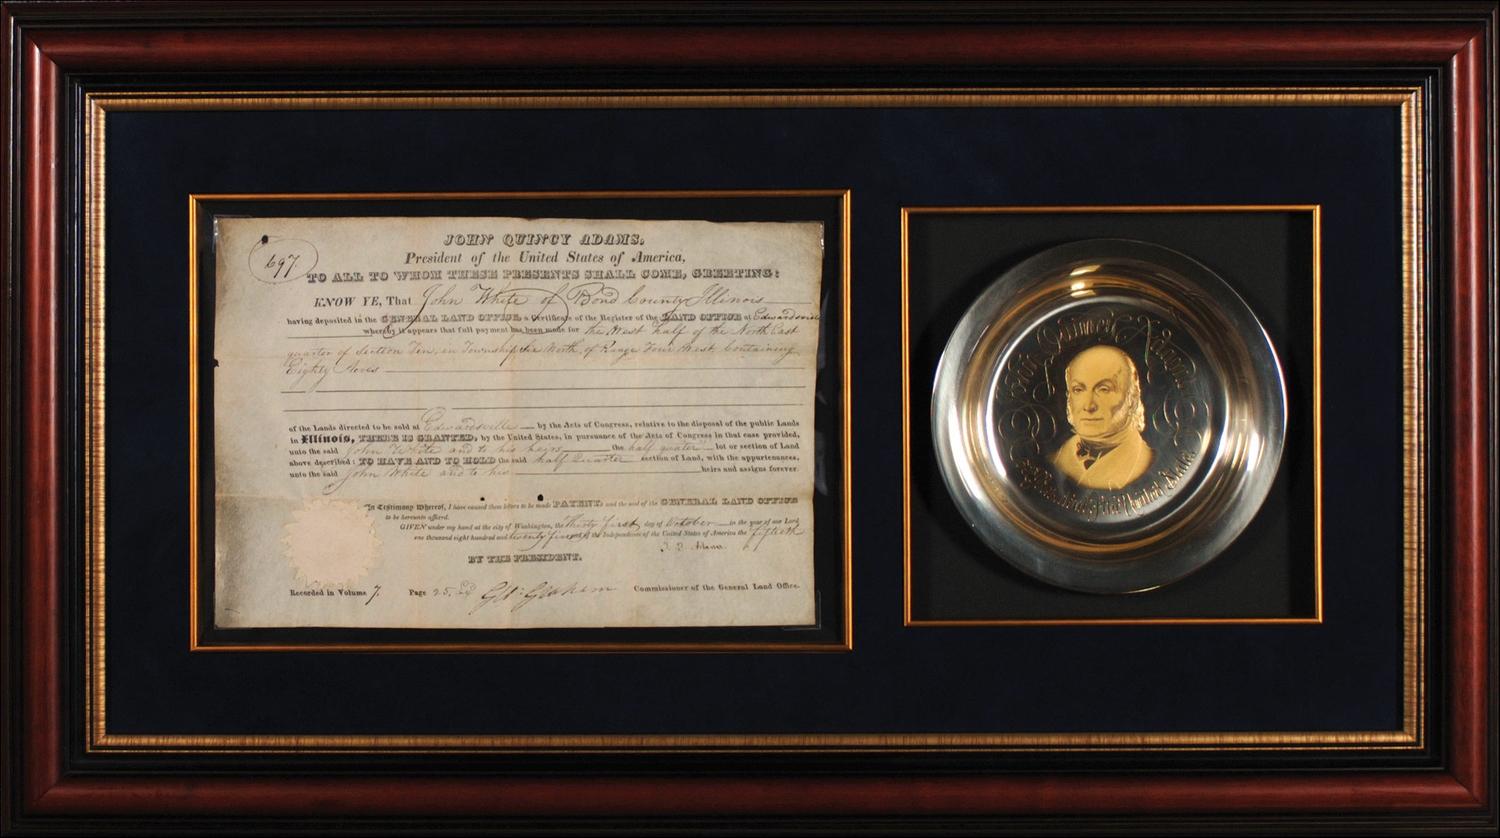 697.
JOHN QUINCY ADAMS,
President of the United States of America,
TO ALL TO WHOM THESE PRESENTS SHALL COME, GREETING:
KNOW YE, That John White of Bond County Illinois
having deposited in the GENERAL LAND OFFICE, a Certificate of the Register of the LAND OFFICE at Edwardsville
whereby it appears that full payment has been made for the West half of the North East
quarter of Section Ten, in Township Six North, of Range Four West, Containing
Eighty Acres
of the Lands directed to be sold at Edwardsville by the Acts of Congress, relative to the disposal of the public Lands
in Illinois, THERE IS GRANTED, by the United States, in pursuance of the Acts of Congress in that case provided,
unto the said John White and to his heirs the half quater lot or section of Land
above described: TO HAVE AND TO HOLD the said half Quarter section of Land, with the appurtenances,
unto the said John White and to his heirs and assigns forever.
In Testimony Whereof, I have caused these letters to be made PATENT, and the seal of the GENERAL LAND OFFICE
to be hereunto affixed.
GIVEN under my hand at the city of Washington, the thirty first day of October in the year of our Lord
one thousand eight hundred and twenty five of the Independence of the United States of America the fiftieth
J. Q. Adams.
BY THE PRESIDENT.
Recorded in Volume 7. Page 25. Geo: Graham Commissioner of the General Land Office.
John Quincy Adams
President of the United States